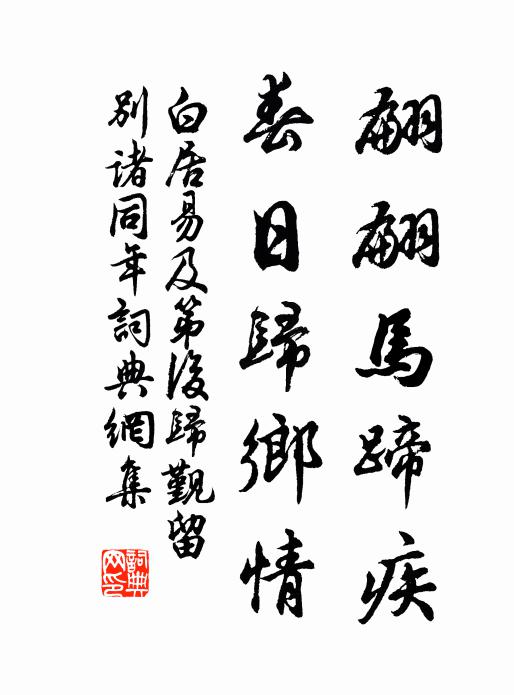 翩翩馬蹄疾
春日歸鄉情
白居易及第後歸覲留
別諸同年詞典網集
詞典
网印